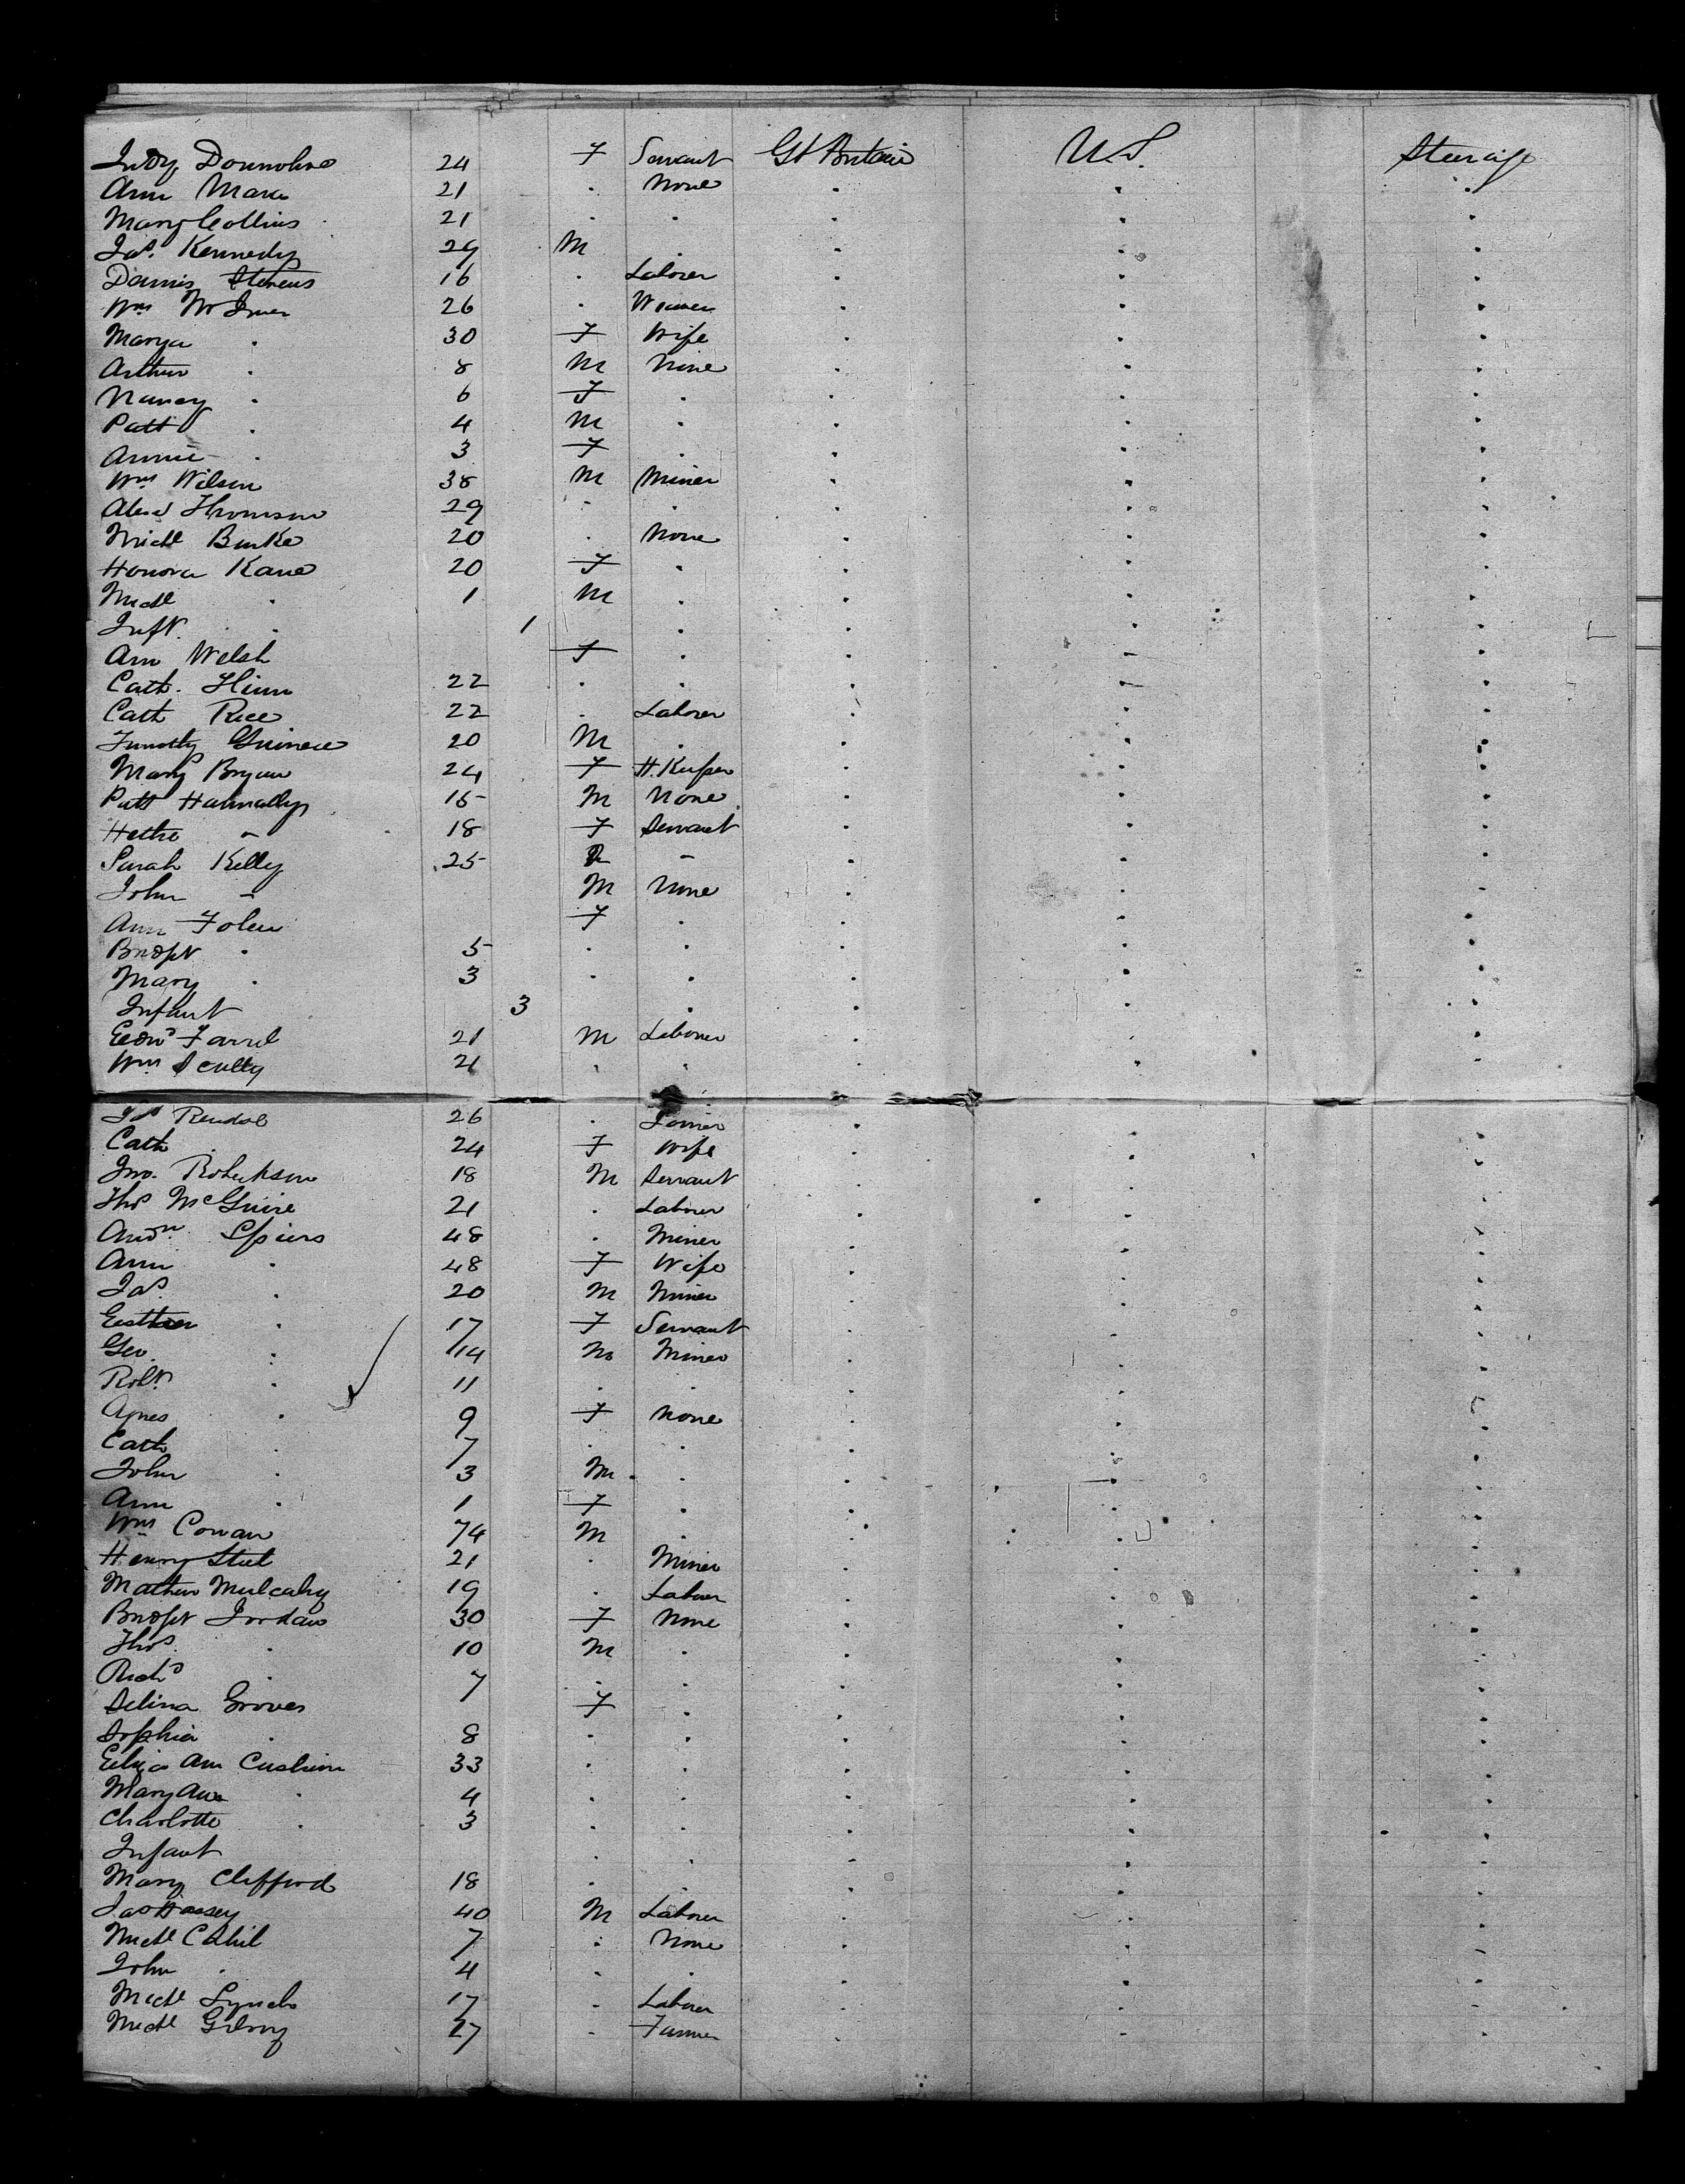 Judy Donnohue 24 F Servant Gt Britain U.S. Steerage
Ann Mara 21 . None . . .
Mary Collins 21 . . . . .
Jas. Kennedy 29 M . . . .
Dennis Stevens 16 . Laborer . . .
Wm 26 . Weaver . . .
Marya . 30 F Wife . . .
Arthur . 8 M None . . .
Nancy . 6 F . . . .
Patt . 4 M . . . .
Annie . 3 F . . . .
Wm Wilson 38 M Miner . . .
Alexd Thomson 29 . . . . .
Michl Burke 20 . None . . .
Honora Kane 20 F . . . .
Michl . 1 M . . . .
Inft. . 1 . . . .
Ann Welsh F . . - .
Cath. 22 . . . - .
Cath Rice 22 . Laborer . . .
Timothy Guinece 20 M . . . .
Mary Bryan 24 F H. Keeper . . .
Patt Hannally 15 M None . . .
- 18 F Servant . . .
Sarah Kelly 25 - . . .
John - M None . . -
Ann Folen F . . . .
Bridget . 5 . . . . .
Mary . 3 . . . . .
Infant 3 . . . .
Edwd Farrel 21 M Laborer . . .
Wm Scully 21 . . . . -
Jas Rendal 26 . Joiner . . .
Cath . 24 F Wife . . .
Jno. Robertson 18 M Servant . . .
Thos McGuire 21 . Laborer . . .
Andw. Spiers 48 . Miner . . .
Ann . 48 F Wife . . .
Jas. . 20 M Miner . . .
Easther . 17 F Servant . . .
Geo. . 14 M Miner . . .
Robt. . 11 . . . . .
Agnes . 9 F None . . .
Cath . 7 . . . . .
John . 3 M . . . .
Ann . 1 F . . . .
Wm Cowan 74 M . . . .
Henry Steel 21 . Miner . . .
Mathew Mulcahy 19 . Laborer . . .
Bridget Jordan 30 F None . . .
Thos. . 10 M . . . .
Richd . 7 . . . . .
Selina Groves F . . . .
Sophia . 8 . . . . .
Eliza Ann Cushion 33 . . . . .
Mary Ann . 4 . . . . .
Charlotte . 3 . . . . .
Infant . . . . .
Mary Clifford 18 . . . . .
Jas 40 M Laborer . . .
Michl Cahil 7 . None . . -
John . 4 . . . . .
Michl Lynch 17 . Laborer . . .
Michl Gilroy 27 . Farmer . . .